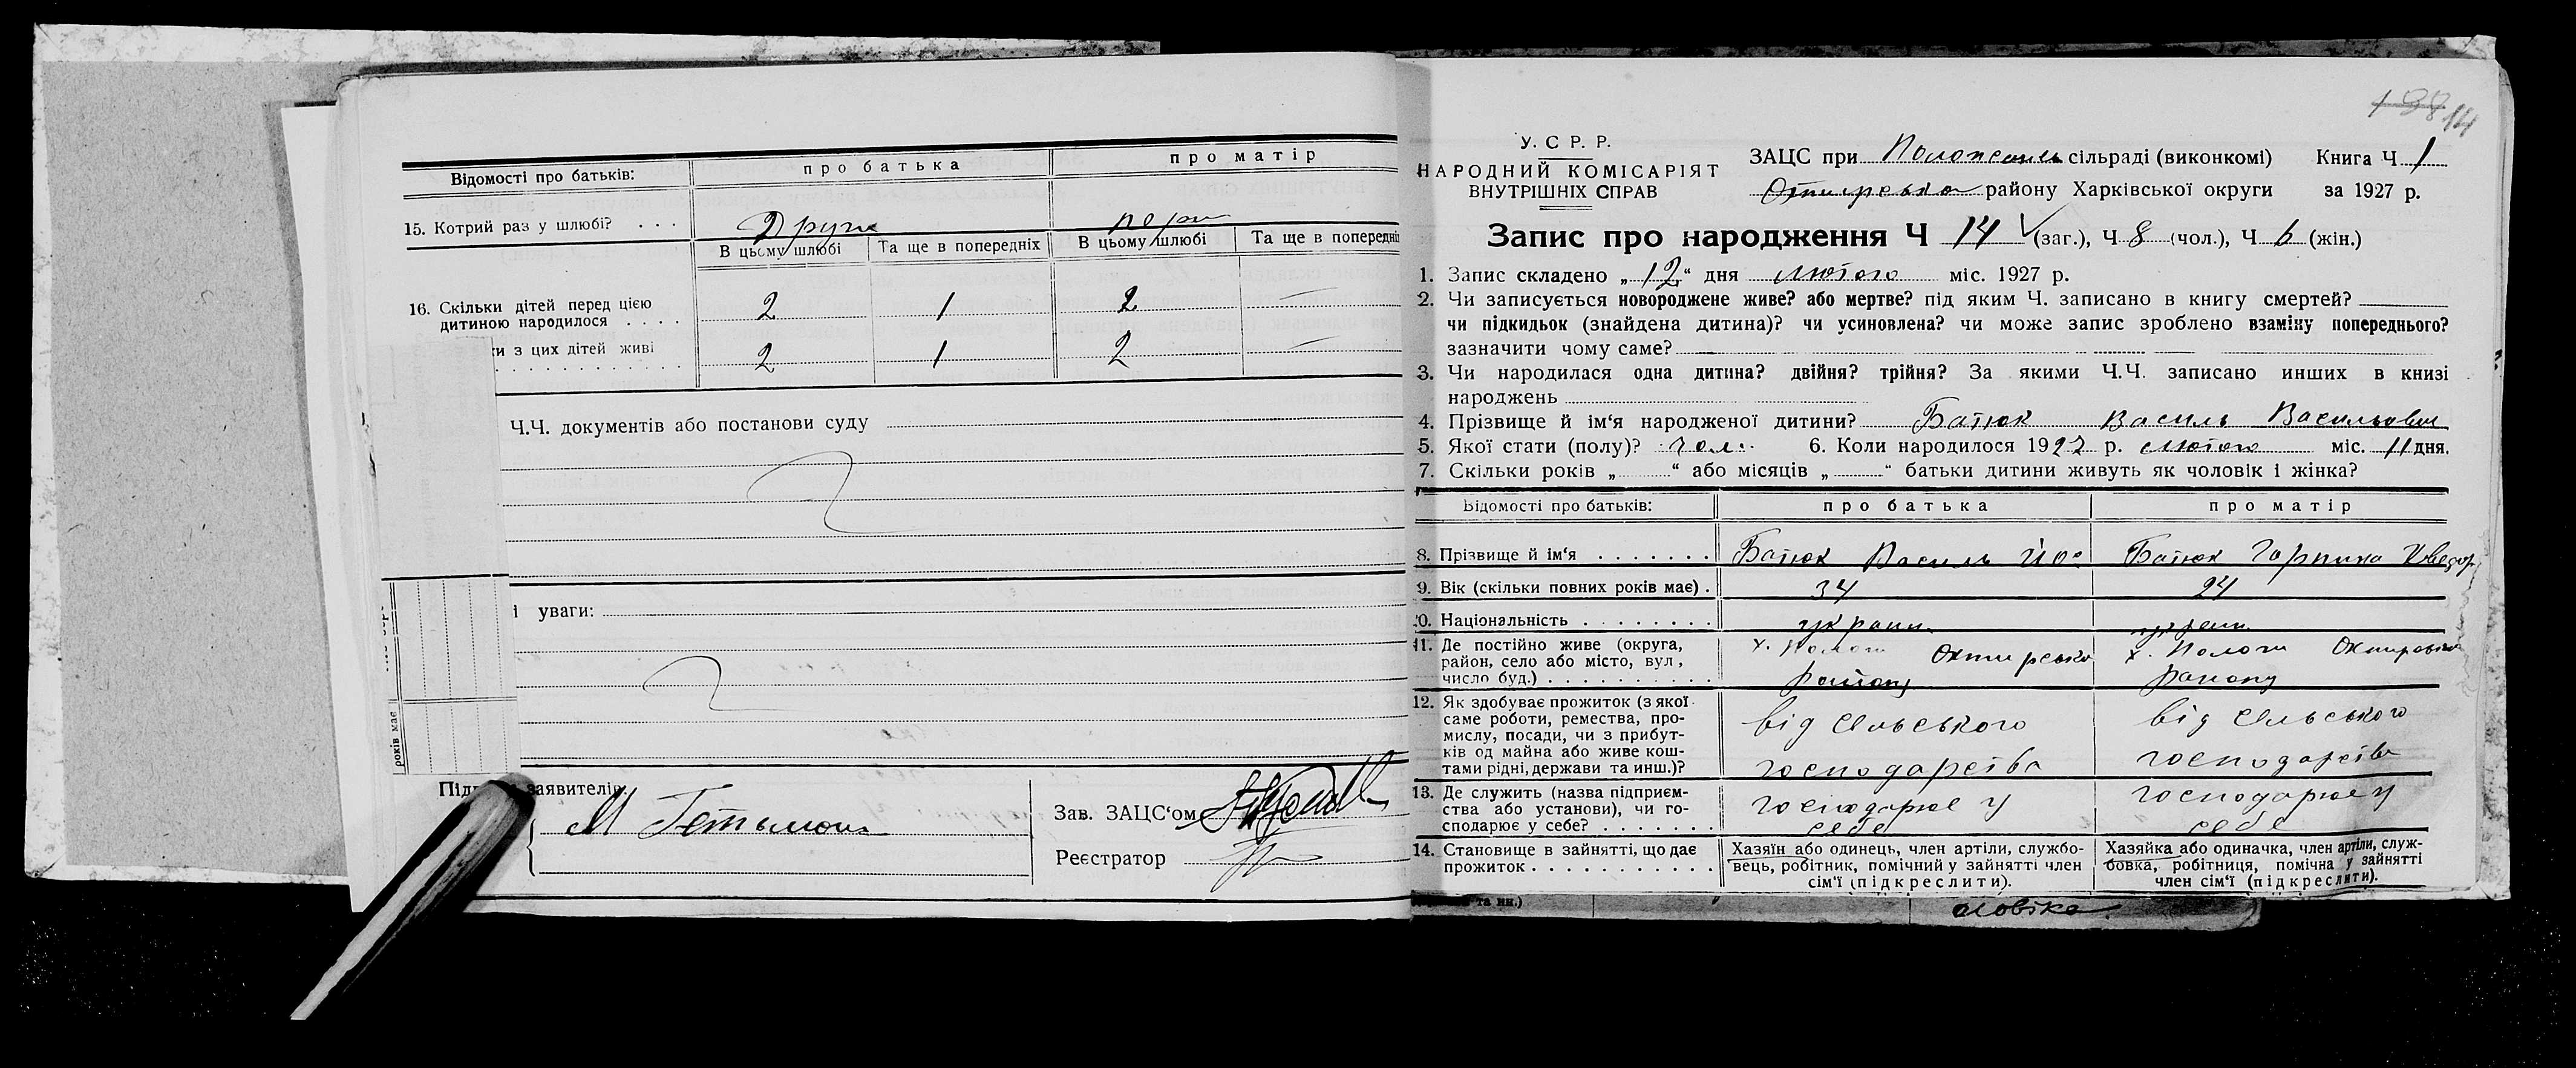 Відомості про батьків: про батька про матір
15. Котрий раз у шлюбі? . . . Други перш
В цьому шлюбі Та ще в попередніх В цьому шлюбі Та ще в попередніх
16. Скільки дітей перед цією
дитиною народилося . . . . 2 1 2 —
ки з цих дітей живі
. . . . . . . . . . . . 2 1 2 —
Ч.Ч. документів або постанови суду
і уваги:
років має
заявителів:
М Гетьман
Зав. ЗАЦС‘ом
Реєстратор
14
У. С. Р. Р.
НАРОДНИЙ КОМІСАРІЯТ
ВНУТРІШНІХ СПРАВ
ЗАЦС при сільраді (виконкомі) Книга Ч 1
району Харківської округи за 1927 р.
Запис про народження Ч 14 (заг.), Ч 8 (чол.), Ч 6 (жін.)
1. Запис складено „12“ дня лютого міс. 1927 р.
2. Чи записується новороджене живе? або мертве? під яким Ч. записано в книгу смертей?
чи підкидьок (знайдена дитина)? чи усиновлена? чи може запис зроблено взаміну попереднього?
зазначити чому саме?
3. Чи народилася одна дитина? двійня? трійня? За якими Ч.Ч. записано инших в книзі
народжень
4. Прізвище й ім‘я народженої дитини? Батюк Василь Васильович
5. Якої стати (полу)? чол. 6. Коли народилося 1927 р. лютого міс. 11 дня.
7. Скільки років „ “ або місяців „ “ батьки дитини живуть як чоловік і жінка?
Відомості про батьків: про батька про матір
8. Прізвище й ім‘я . . . . . . . Батюк Василь Йос Батюк Горпина Хведор
9. Вік (скільки повних років має) . 34 24
10. Національність . . . . . . . . украин. украин.
11. Де постійно живе (округа,
район, село або місто, вул,
число буд.) . . . . . . . . . . .
х. Пологи Охтирсько
району
х. Пологи Охтирсько
району
12. Як здобуває прожиток (з якої
саме роботи, ремества, про-
мислу, посади, чи з прибут-
ків од майна або живе кош-
тами рідні, держави та инш.)?
від сільського
господарства
від сільського
господарств
13. Де служить (назва підприєм-
ства або установи), чи го-
сподарює у себе? . . . . . . .
господарює у
себе
господарює у
себе
14. Становище в зайнятті, що дає
прожиток . . . . . . . . . . . .
Хазяїн або одинець, член артіли, службо-
вець, робітник, помічний у зайнятті член
сім‘ї (підкреслити).
Хазяйка або одиначка, член артіли, служ-
бовка, робітниця, помічна у зайнятті
член сім‘ї (підкреслити).
та ин.)